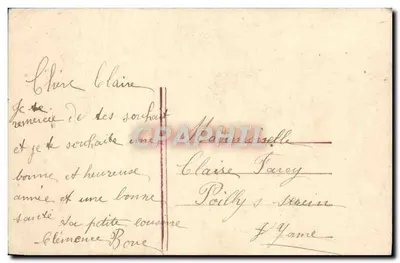 Chère Claire
Je te
remercie de tes souhait
et je te souhaite une
bonne et heureuse
année et une bonne
santé ta petite cousine
Clémence
Mademoiselle
Claire Farcy
Poilly s
CPARAMA